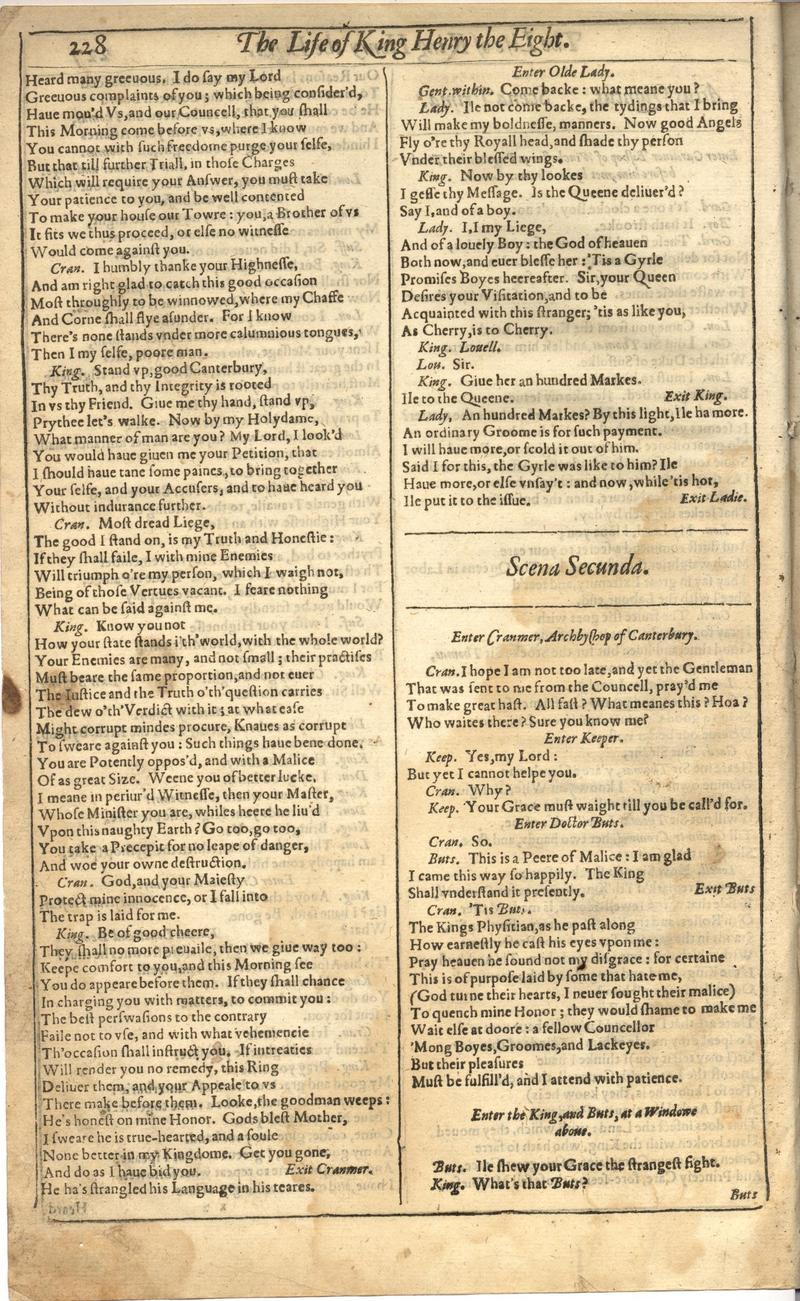 228
The Life of King Henry the Eight.
Heard many greeuous. I do ſay my Lord
Greeuous complaints of you; which being conſider'd,
Haue mou'd Vs, and our Councell, that you ſhall
This Morning come before vs, where I know
You cannot with ſuch freedome purge your ſelfe,
But that till further Triall, in thoſe Charges
Which will require your Anſwer, you muſt take
Your patience to you, and be well contented
To make your houſe our Towre: you, a Brother of vs
It fits we thus proceed, or elſe no witneſſe
Would come againſt you.
Cran. I humbly thanke your Highneſſe,
And am right glad to catch this good occaſion
Moſt throughly to be winnowed, where my Chaffe
And Corne ſhall flye aſunder. For I know
There's none ſtands vnder more calumnious tongues,
Then I my ſelfe, poore man.
King. Stand vp, good Canterbury,
Thy Truth, and thy Integrity is rooted
In vs thy Friend. Giue me thy hand, ſtand vp,
Prythee let's walke. Now by my Holydame,
What manner of man are you? My Lord, I look'd
You would haue giuen me your Petition, that
I ſhould haue tane ſome paines, to bring together
Your ſelfe, and your Accuſers, and to haue heard you
Without indurance further.
Cran. Moſt dread Liege,
The good I ſtand on, is my Truth and Honeſtie:
If they ſhall faile, I with mine Enemies
Will triumph o're my perſon, which I waigh not,
Being of thoſe Vertues vacant. I feare nothing
What can be ſaid againſt me.
King. Know you not
How your ſtate ſtands i'th'world, with the whole world?
Your Enemies are many, and not ſmall; their practiſes
Muſt beare the ſame proportion, and not euer
The Iuſtice and the Truth o'th'queſtion carries
The dew o'th'Verdict with it; at what eaſe
Might corrupt mindes procure, Knaues as corrupt
To ſweare againſt you: Such things haue bene done.
You are Potently oppos'd, and with a Malice
Of as great Size. Weene you of better lucke,
I meane in periur'd Witneſſe, then your Maſter,
Whoſe Miniſter you are, whiles heere he liu'd
Vpon this naughty Earth? Go too, go too,
You take a Precepit for no leape of danger,
And woe your owne deſtruction.
Cran. God, and your Maieſty
Protect mine innocence, or I fall into
The trap is laid for me.
King. Be of good cheere,
They ſhall no more preuaile, then we giue way too:
Keepe comfort to you, and this Morning ſee
You do appeare before them. If they ſhall chance
In charging you with matters, to commit you:
The beſt perſwaſions to the contrary
Faile not to vſe, and with what vehemencie
Th'occaſion ſhall inſtruct you. If intreaties
Will render you no remedy, this Ring
Deliuer them, and your Appeale to vs
There make before them. Looke, the goodman weeps:
He's honeſt on mine Honor. Gods bleſt Mother,
I ſweare he is true-hearted, and a ſoule
None better in my Kingdome. Get you gone,
And do as I haue bid you. Exit Cranmer.
He ha's ſtrangled his Language in his teares.
Enter Olde Lady.
Gent. within. Come backe: what meane you?
Lady. Ile not come backe, the tydings that I bring
Will make my boldneſſe, manners. Now good Angels
Fly o're thy Royall head, and ſhade thy perſon
Vnder their bleſſed wings.
King. Now by thy lookes
I geſſe thy Meſſage. Is the Queene deliuer'd?
Say I, and of a boy.
Lady. I, I my Liege,
And of a louely Boy: the God of heauen
Both now, and euer bleſſe her: 'Tis a Gyrle
Promiſes Boyes heereafter. Sir, your Queen
Deſires your Viſitation, and to be
Acquainted with this ſtranger; 'tis as like you,
As Cherry, is to Cherry.
King. Louell.
Lou. Sir.
King. Giue her an hundred Markes.
Ile to the Queene. Exit King.
Lady. An hundred Markes? By this light, Ile ha more.
An ordinary Groome is for ſuch payment.
I will haue more, or ſcold it out of him.
Said I for this, the Gyrle was like to him? Ile
Haue more, or elſe vnſay't: and now, while 'tis hot,
Ile put it to the iſſue. Exit Ladie.
Scena Secunda.
Enter Cranmer, Archbyſhop of Canterbury.
Cran. I hope I am not too late, and yet the Gentleman
That was ſent to me from the Councell, pray'd me
To make great haſt. All faſt? What meanes this? Hoa?
Who waites there? Sure you know me?
Enter Keeper.
Keep. Yes, my Lord:
But yet I cannot helpe you.
Cran. Why?
Keep. Your Grace muſt waight till you be call'd for.
Enter Doctor Buts.
Cran. So.
Buts. This is a Peere of Malice: I am glad
I came this way ſo happily. The King
Shall vnderſtand it preſently. Exit Buts
Cran. 'Tis Buts.
The Kings Phyſitian, as he paſt along
How earneſtly he caſt his eyes vpon me:
Pray heauen he ſound not my diſgrace: for certaine
This is of purpoſe laid by ſome that hate me,
(God turne their hearts, I neuer ſought their malice)
To quench mine Honor; they would ſhame to make me
Wait elſe at doore: a fellow Councellor
'Mong Boyes, Groomes, and Lackeyes.
But their pleaſures
Muſt be fulfill'd, and I attend with patience.
Enter the King, and Buts, at a Windowe
aboue.
Buts. Ile ſhew your Grace the ſtrangeſt ſight.
King. What's that Buts?
Buts